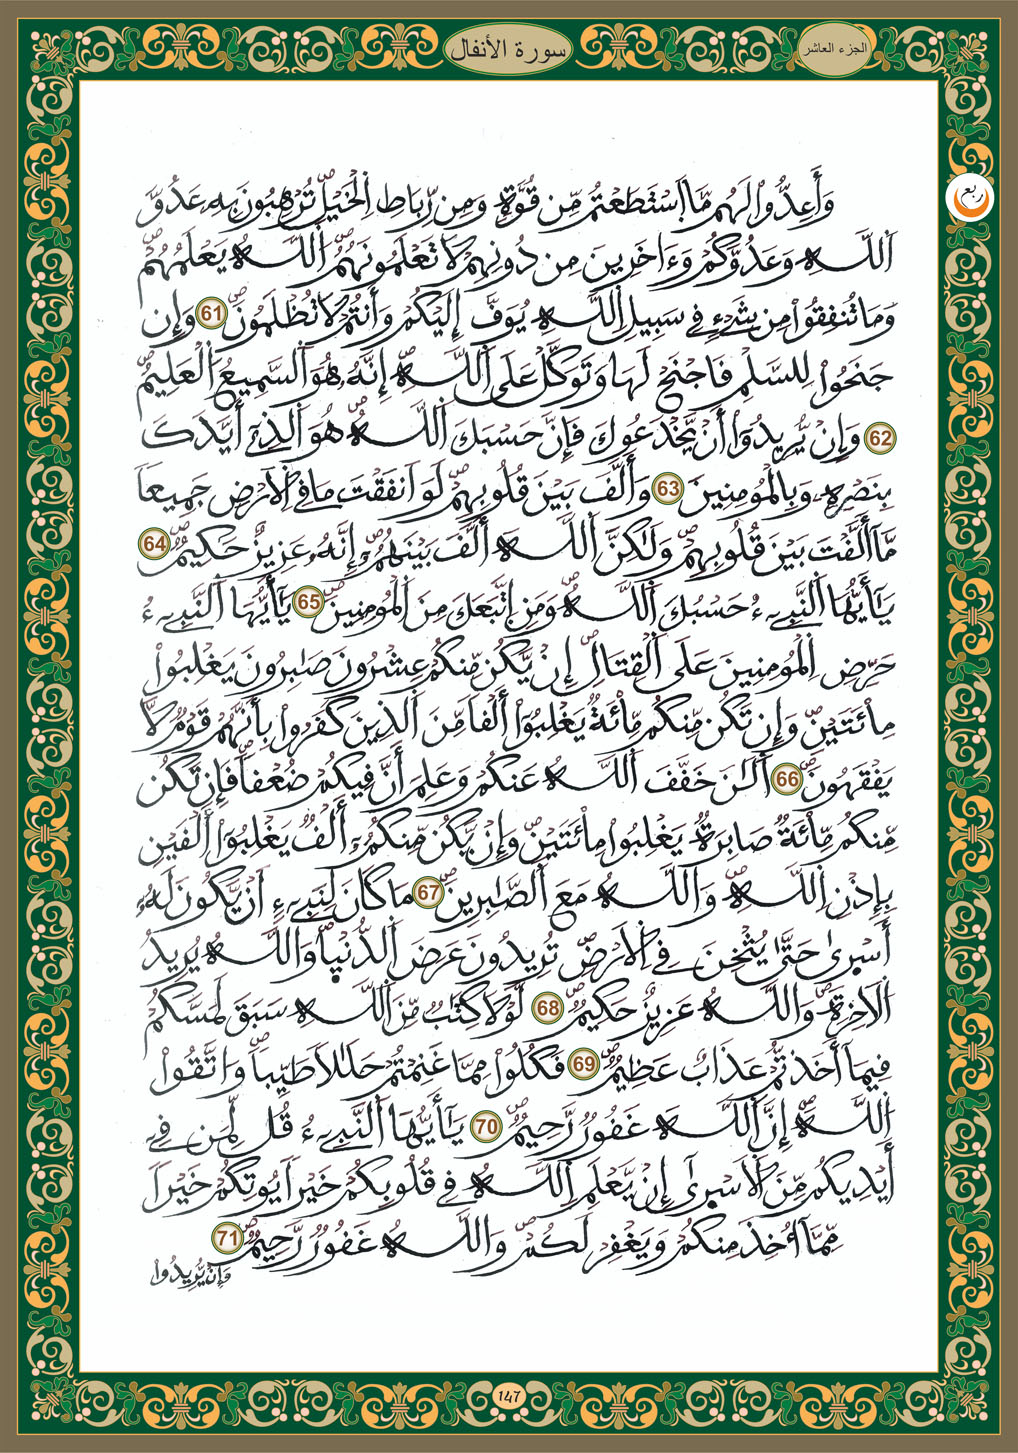 سورة الأنفال
الجزء العاشر
ربع
وَأَعِدُّواْ لَهُم مَّا اَسْتَطَعْتُم مِّن قُوَّةٖ وَمِن رِّبَاطِ اِ۬لْخَيْلِ تُرْهِبُونَ بِهِۦ عَدُوَّ
اَ۬للَّهِ وَعَدُوَّكُمْ وَءَاخَرِينَ مِن دُونِهِمْ لَا تَعْلَمُونَهُمُ اُ۬للَّهُ يَعْلَمُهُمْ
وَمَا تُنفِقُواْ مِن شَےْءٖ فِے سَبِيلِ اِ۬للَّهِ يُوَفَّ إِلَيْكُمْ وَأَنتُمْ لَا تُظْلَمُونَ 61 وَإِن
جَنَحُواْ لِلسَّلْمِ فَاجْنَحْ لَهَا وَتَوَكَّلْ عَلَى اَ۬للَّهِ إِنَّهُۥ هُوَ اَ۬لسَّمِيعُ اُ۬لْعَلِيمُ
62 وَإِنْ يُّرِيدُوٓاْ أَنْ يَّخْدَعُوكَ فَإِنَّ حَسْبَكَ اَ۬للَّهُ هُوَ اَ۬لذِےٓ أَيَّدَكَ
بِنَصْرِهِۦ وَبِالْمُومِنِينَ 63 وَأَلَّفَ بَيْنَ قُلُوبِهِمْ لَوَ اَنفَقْتَ مَا فِے اِ۬لَارْضِ جَمِيعاٗ
مَّآ أَلَّفْتَ بَيْنَ قُلُوبِهِمْ وَلَٰكِنَّ اَ۬للَّهَ أَلَّفَ بَيْنَهُمُۥٓ إِنَّهُۥ عَزِيزٌ حَكِيمٞ 64
يَٰٓأَيُّهَا اَ۬لنَّبِےٓءُ حَسْبُكَ اَ۬للَّهُ وَمَنِ اِ۪تَّبَعَكَ مِنَ اَ۬لْمُومِنِينَ 65 يَٰٓأَيُّهَا اَ۬لنَّبِےٓءُ
حَرِّضِ اِ۬لْمُومِنِينَ عَلَى اَ۬لْقِتَالِ إِنْ يَّكُن مِّنكُمْ عِشْرُونَ صَٰبِرُونَ يَغْلِبُواْ
مِاْئَتَيْنِ وَإِن تَكُن مِّنكُم مِّاْئَةٞ يَغْلِبُوٓاْ أَلْفاٗ مِّنَ اَ۬لذِينَ كَفَرُواْ بِأَنَّهُمْ قَوْمٞ لَّا
يَفْقَهُونَ 66 اَ۬لَٰنَ خَفَّفَ اَ۬للَّهُ عَنكُمْ وَعَلِمَ أَنَّ فِيكُمْ ضُعْفاٗ فَإِن تَكُن
مِّنكُم مِّاْئَةٞ صَابِرَةٞ يَغْلِبُواْ مِاْئَتَيْنِ وَإِنْ يَّكُن مِّنكُمُۥٓ أَلْفٞ يَغْلِبُوٓاْ أَلْفَيْنِ
بِإِذْنِ اِ۬للَّهِ وَاللَّهُ مَعَ اَ۬لصَّٰبِرِينَ 67 مَا كَانَ لِنَبِےٓءٍ اَنْ يَّكُونَ لَهُۥٓ
أَسْرىٰ حَتَّىٰ يُثْخِنَ فِے اِ۬لَارْضِ تُرِيدُونَ عَرَضَ اَ۬لدُّنْيَا وَاللَّهُ يُرِيدُ
اُ۬لَاخِرَةَ وَاللَّهُ عَزِيزٌ حَكِيمٞ 68 لَّوْلَا كِتَٰبٞ مِّنَ اَ۬للَّهِ سَبَقَ لَمَسَّكُمْ
فِيمَآ أَخَذتُّمْ عَذَابٌ عَظِيمٞ 69 فَكُلُواْ مِمَّا غَنِمْتُمْ حَلَٰلاٗ طَيِّباٗ وَاتَّقُواْ
اُ۬للَّهَ إِنَّ اَ۬للَّهَ غَفُورٞ رَّحِيمٞ 70 يَٰٓأَيُّهَا اَ۬لنَّبِےٓءُ قُل لِّمَن فِےٓ
أَيْدِيكُم مِّنَ اَ۬لَاسْرىٰٓ إِنْ يَّعْلَمِ اِ۬للَّهُ فِے قُلُوبِكُمْ خَيْراٗ يُوتِكُمْ خَيْراٗ
مِّمَّآ أُخِذَ مِنكُمْ وَيَغْفِرْ لَكُمْ وَاللَّهُ غَفُورٞ رَّحِيمٞ 71
وَإِنْ يُّرِيدُواْ
147